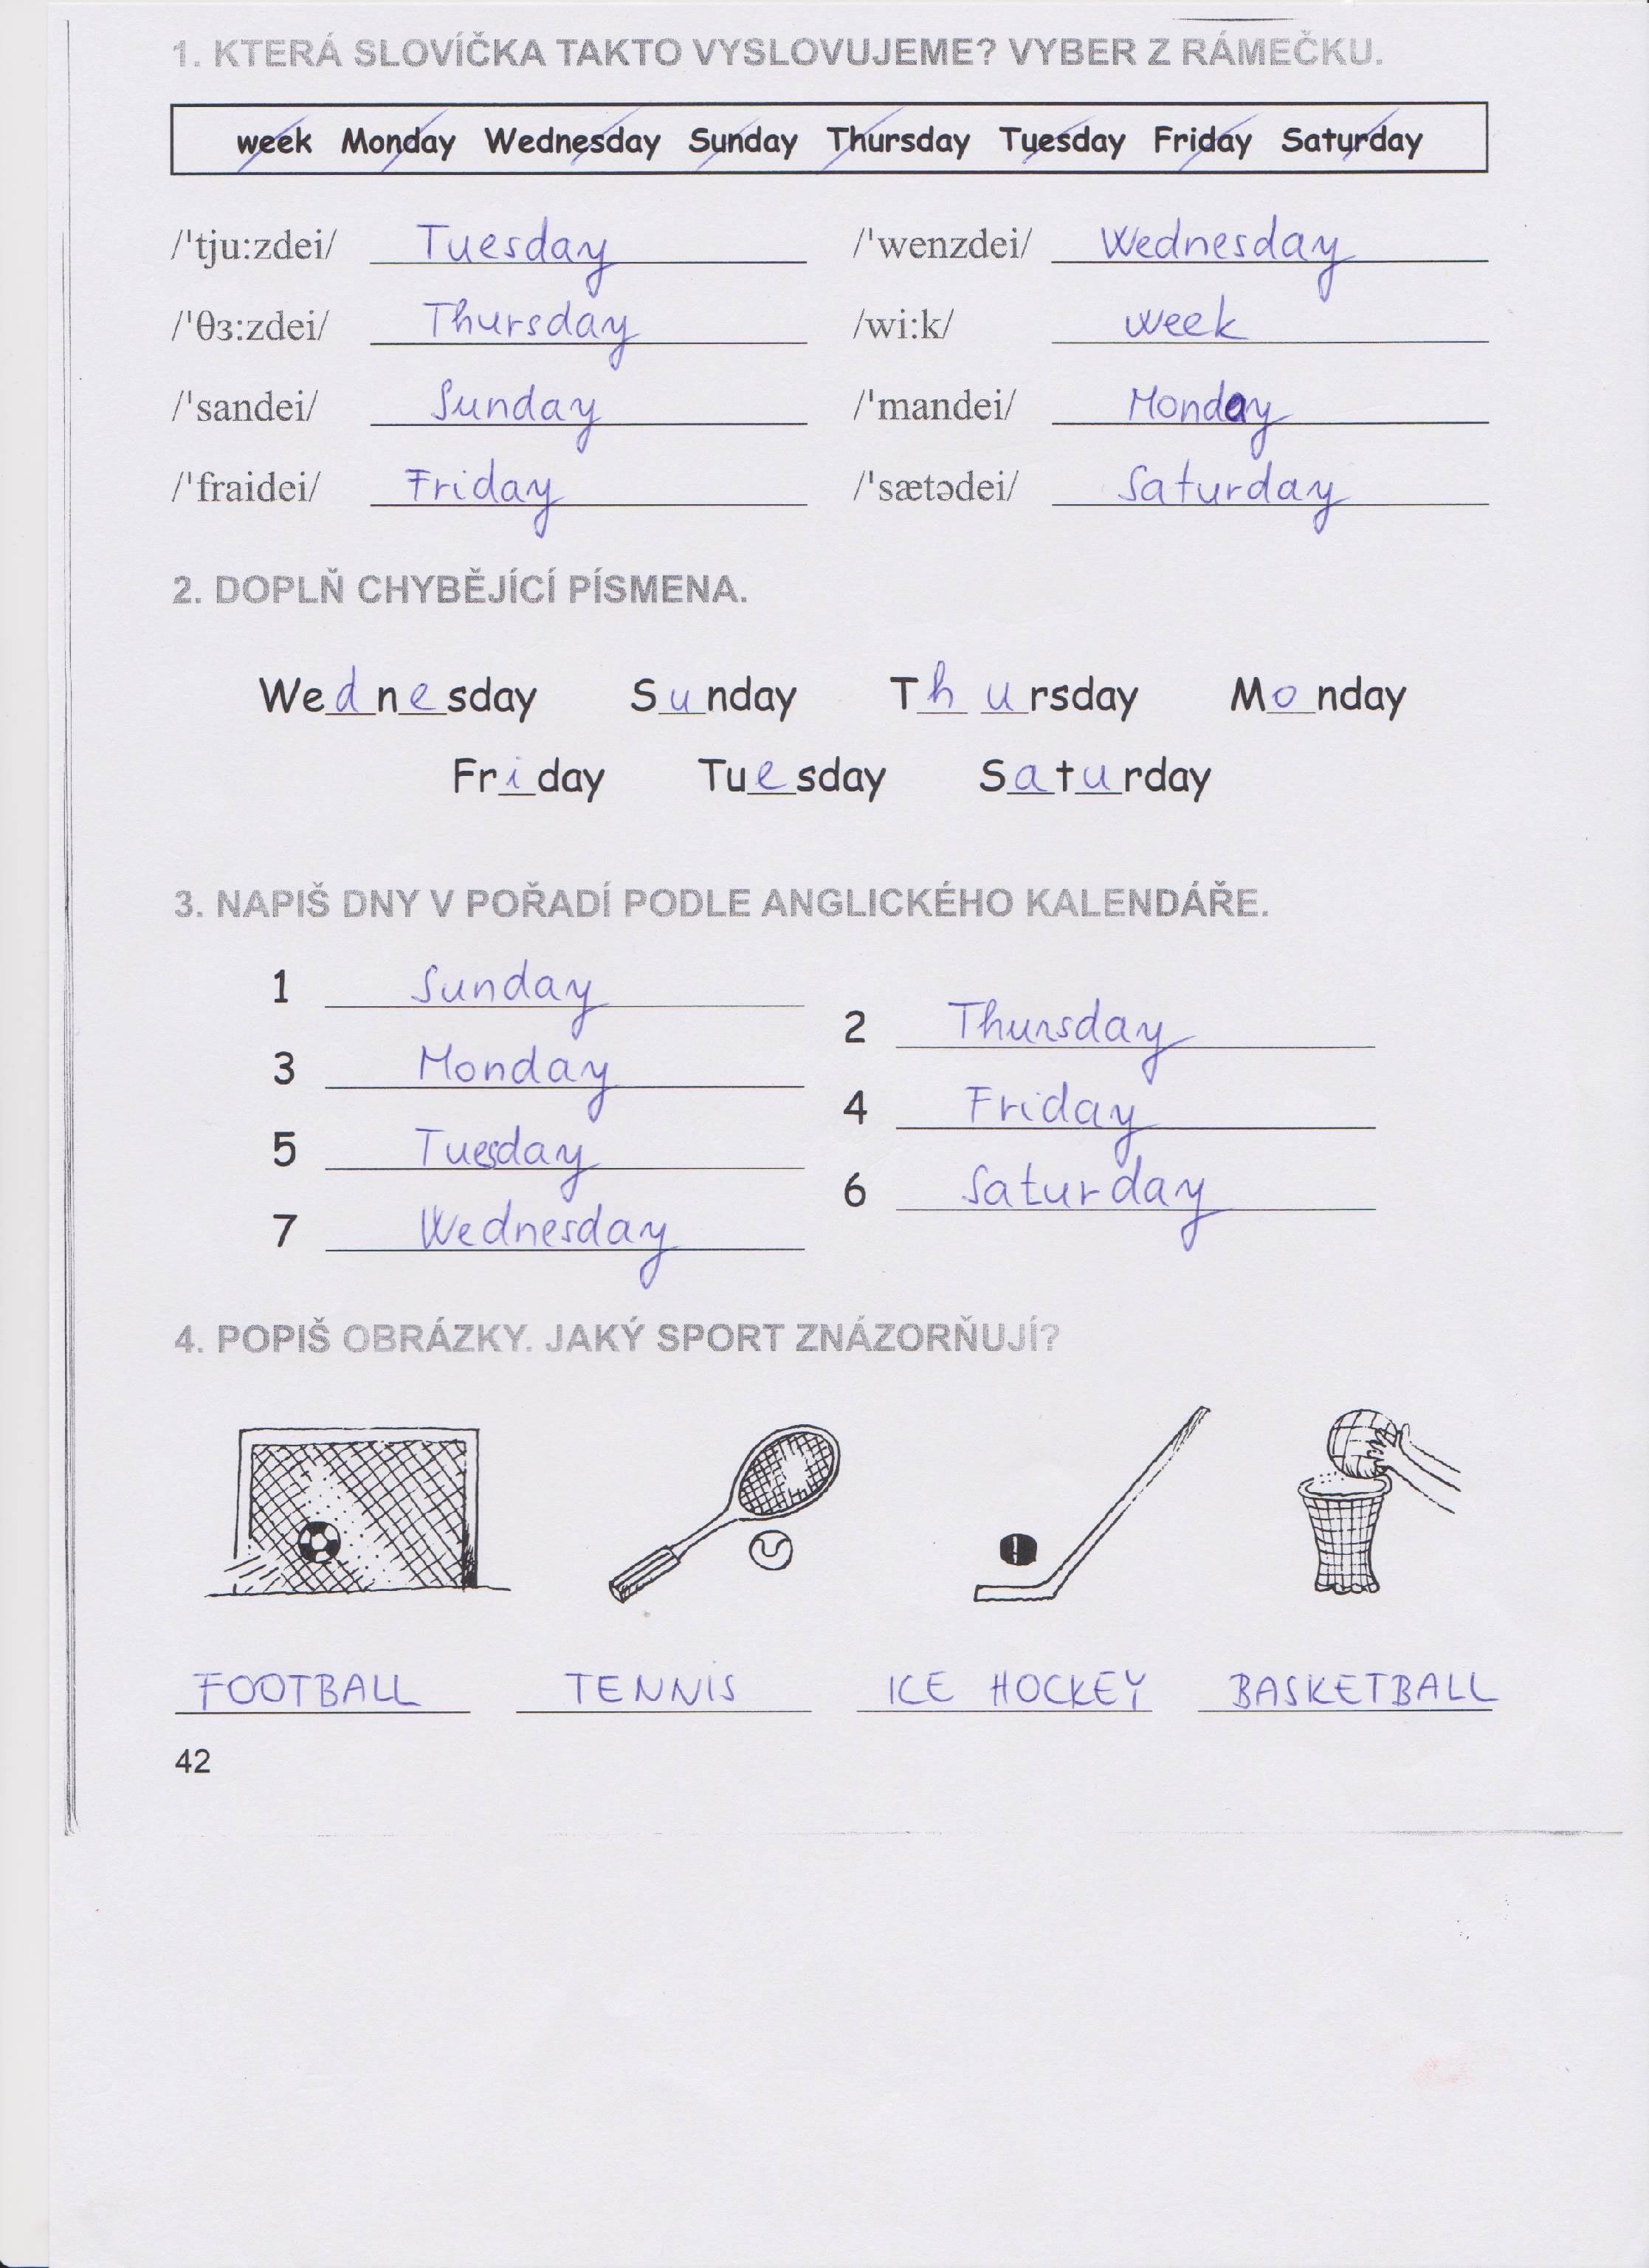 1. KTERÁ SLOVÍČKA TAKTO VYSLOVUJEME? VYBER Z RÁMEČKU.
week Monday Wednesday Sunday Thursday Tuesday Friday Saturday
/'tju:zdei/ Tuesday /'wenzdei/ Wednesday
/'θɜ:zdei/ Thursday /wi:k/ week
/'sandei/ Sunday /'mandei/ Monday
/'fraidei/ Friday /'sætədei/ Saturday
2. DOPLŇ CHYBĚJÍCÍ PÍSMENA.
Wednesday Sunday Thursday Monday
Friday Tuesday Saturday
3. NAPIŠ DNY V POŘADÍ PODLE ANGLICKÉHO KALENDÁŘE.
1 Sunday
2 Thursday
3 Monday
4 Friday
5 Tuesday
6 Saturday
7 Wednesday
4. POPIŠ OBRÁZKY. JAKÝ SPORT ZNÁZORŇUJÍ?
FOOTBALL TENNIS ICE HOCKEY BASKETBALL
42